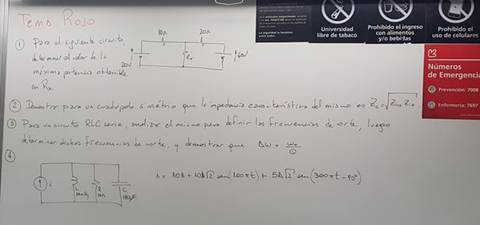 Tema Rojo
① Para el siguiente circuito,
determinar el valor de la
máxima potencia obtenible
en Rx.
10Ω 20Ω
20V Rx
② Demostrar para un cuadripolo simétrico que la impedancia característica del mismo es Z₀=√
③ Para un circuito RLC serie, analizar el mismo para definir las frecuencias de corte, luego
determinar dichas frecuencias de corte, y demostrar que Δω = ω₀/Q
④
i = 10A + 10A√2 sen(100πt) + 5A√2 sen(300πt - 90°)
Universidad
libre de tabaco
Prohibido el ingreso
con alimentos
y/o bebidas
Prohibido el
uso de celulares
Números
de Emergencia
Prevención: 7008
Enfermería: 7697